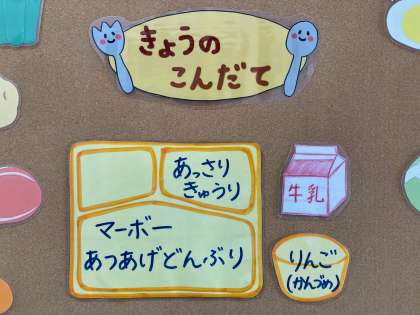 きょうの
こんだて
あっさり
きゅうり
マーボー
あつあげどんぶり
牛乳
りんご
(かんづめ)